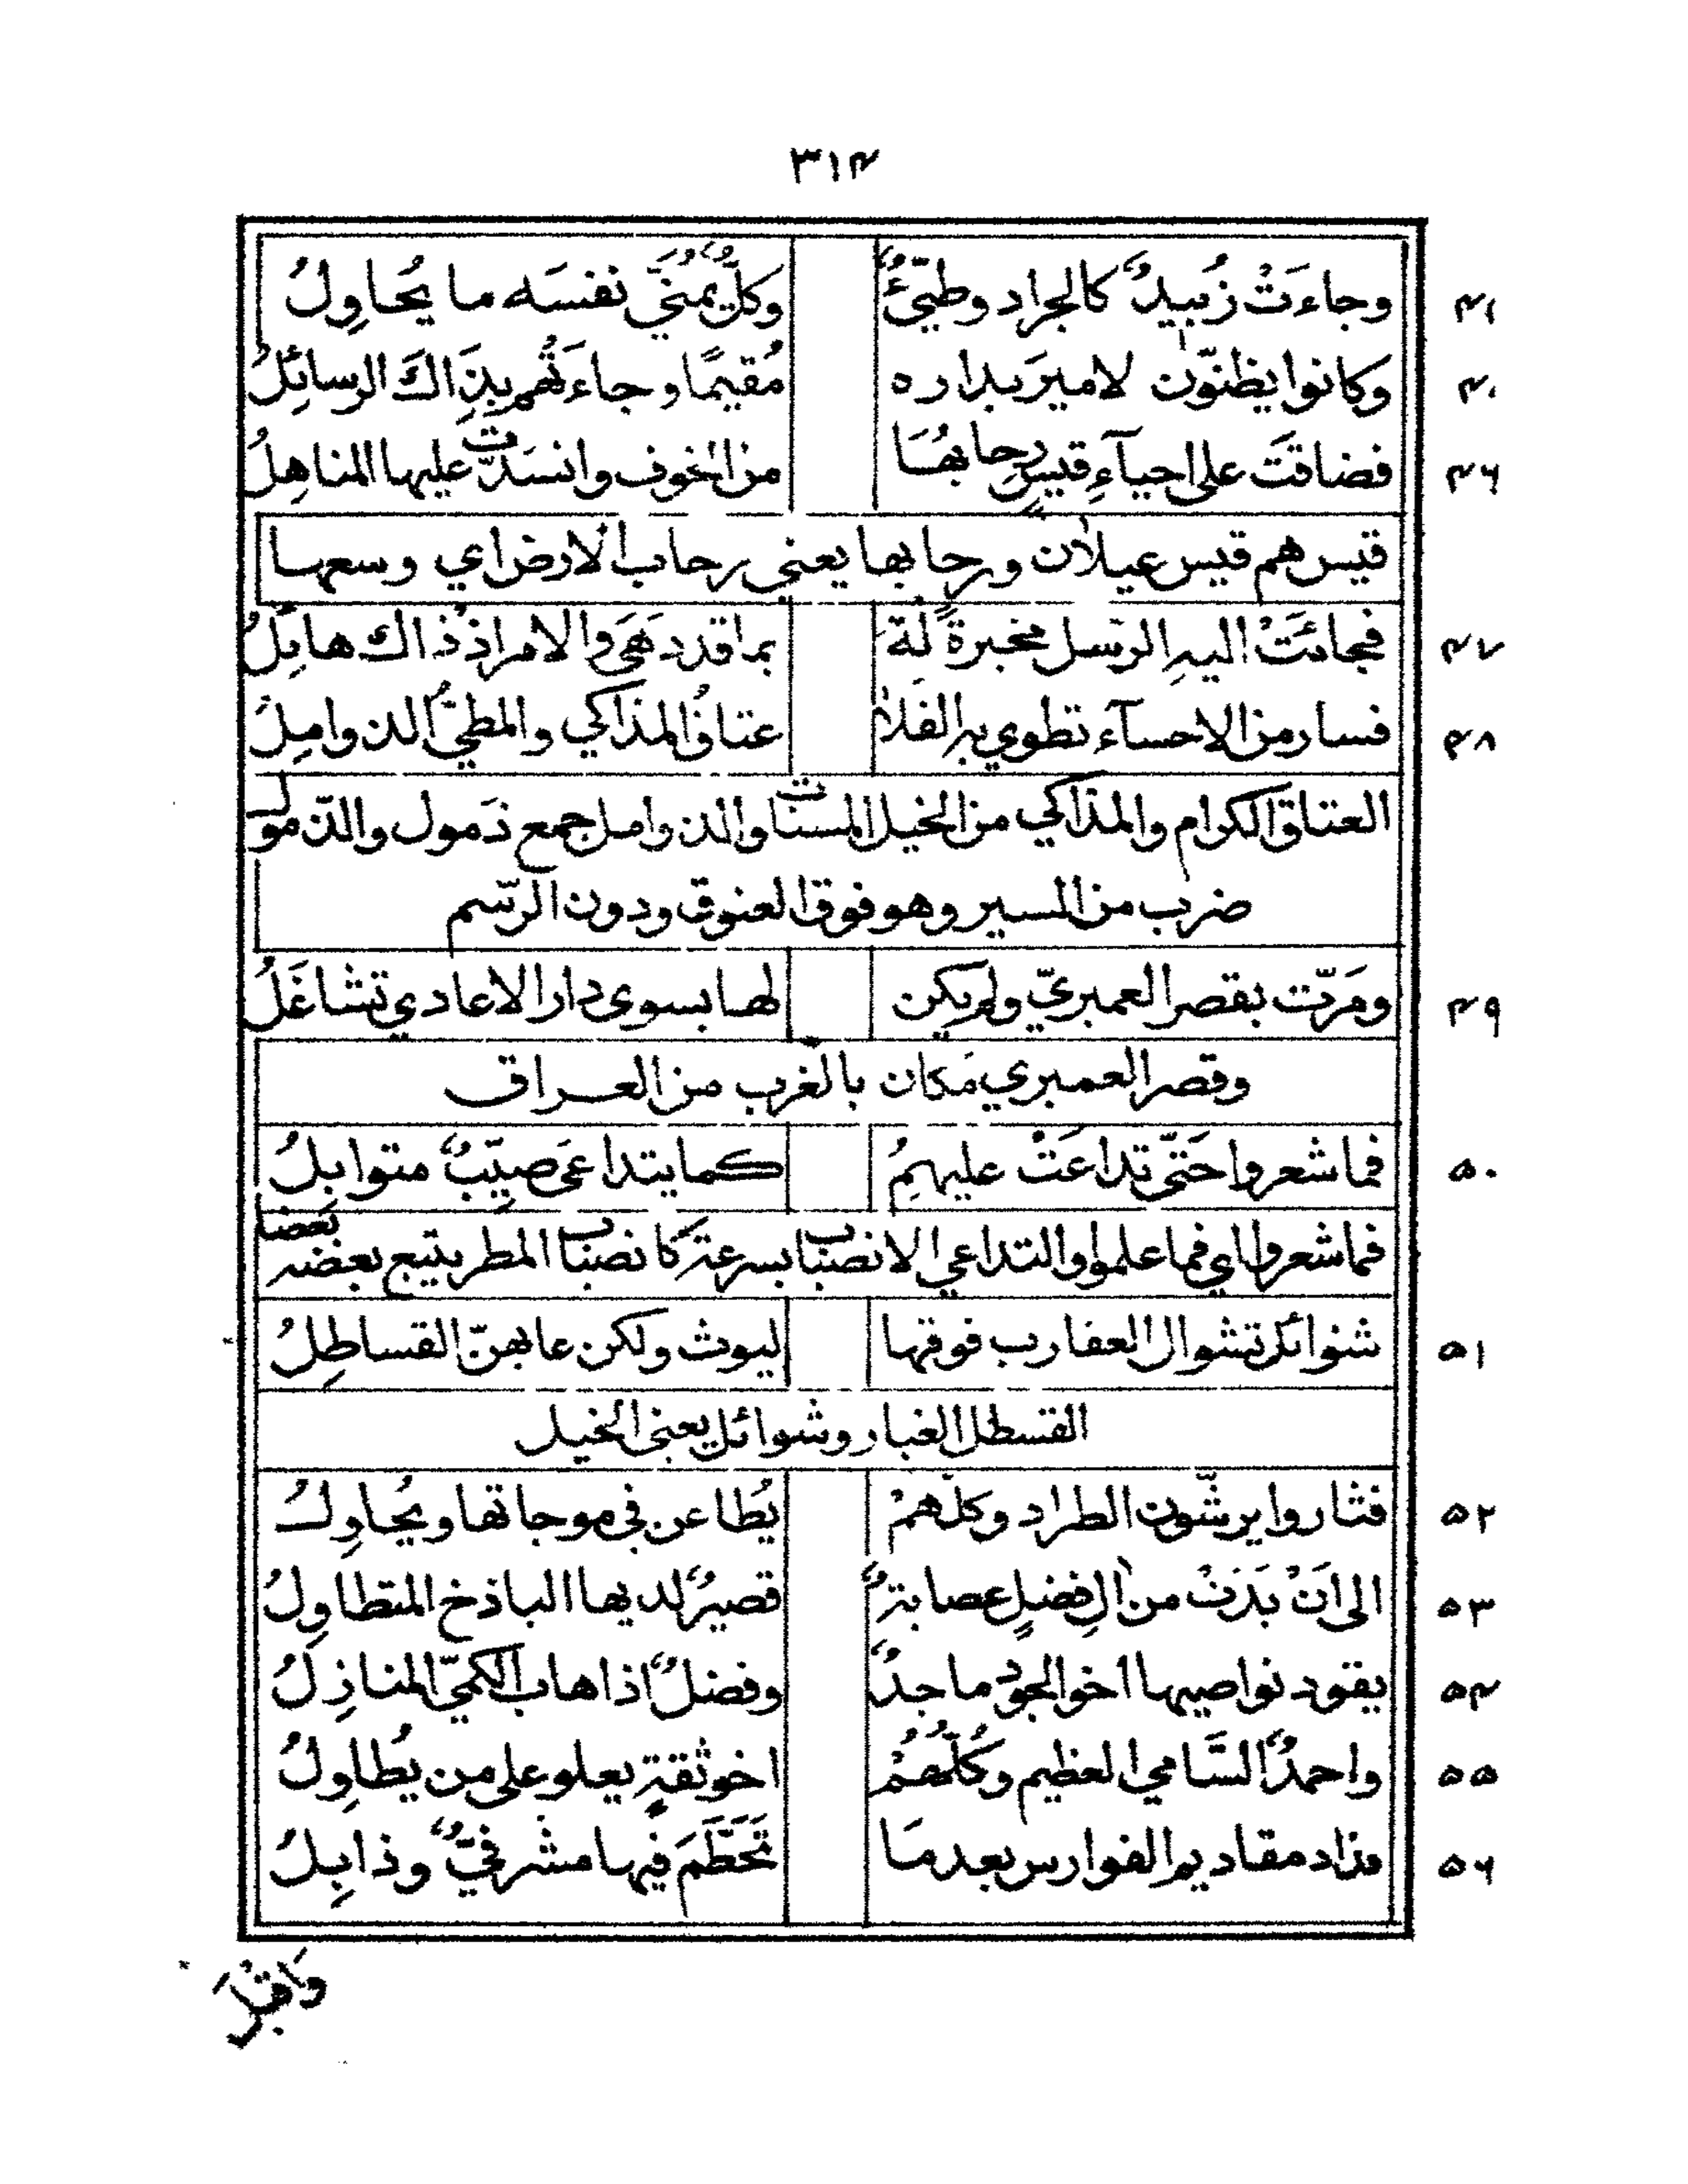 ٣١٤
٤١ وجاءَتْ زُبيدٌ كالجراد وطيّئٌ وكلٌّ يُمنّي نفسَه ما يُحاوِلُ
٤٠ وكانوا يظنّون لاميرَ بداره مُقيمًا وجاءَتْهم بذَاكَ الرسائِلُ
٤٦ فضاقتَ على احيآءِ قيسٍ رحابُهَا من الخوف وانسَدّت عليها المناهِلُ
قيس هم قيس عيلان ورحابها يعني رحاب الارض اي وسعها
٤٧ فجائَتْ اليهِ الرّسل مخبرةً لَهُ بما قد دَهَى والامر اذ ذاك هائِلُ
٤٨ فسار من الاحسآء تطوي به الفَلا عتاقُ المذاكي والمطيُّ الذوامِلُ
العتاق الكرام والمذاكي من الخيل المسنات والذوامل جمع ذَمول والذّمول
ضرب من المسير وهو فوق العنوق ودون الرّسم
٤٩ ومَرّت بقصر العمبريّ ولم يكن لها بسوى دار الاعادي تشاغَلُ
وقصر العمبري مَكان بالغرب من العراق
٥٠ فما شعروا حَتّى تداعَتْ عليهمِ كما يتداعَى صيِّبٌ متوابِلُ
فما شعروا اي فما علموا والتداعي الانصباب بسرعة كانصباب المطر يتبع بعضه بعضا
٥١ شوائل تشوال العقارب فوقها ليوث ولكن عابهنّ القساطِلُ
القسطل الغبار وشوائل يعنى الخيل
٥٢ فثاروا يرشّون الطراد وكلّهمْ يُطاعن في موجاتها ويُحاوِلُ
٥٣ الى اَنْ بَدَتْ من اٰلِ فضلٍ عصابةٌ قصيرٌ لديها الباذخ المتطاوِلُ
٥٤ يقود نواصيها اخو الجود ماجدٌ وفضلٌ اذا هاب الكميّ المنازِلُ
٥٥ واحمدٌ السَّامي العظيم وكُلُّهُمْ اخو ثقةٍ يعلو على من يُطاوِلُ
٥٦ فذاد مقاديم الفوارس بعد مَا تَحَطَّمَ فيها مشرفيٌّ وذابِلُ